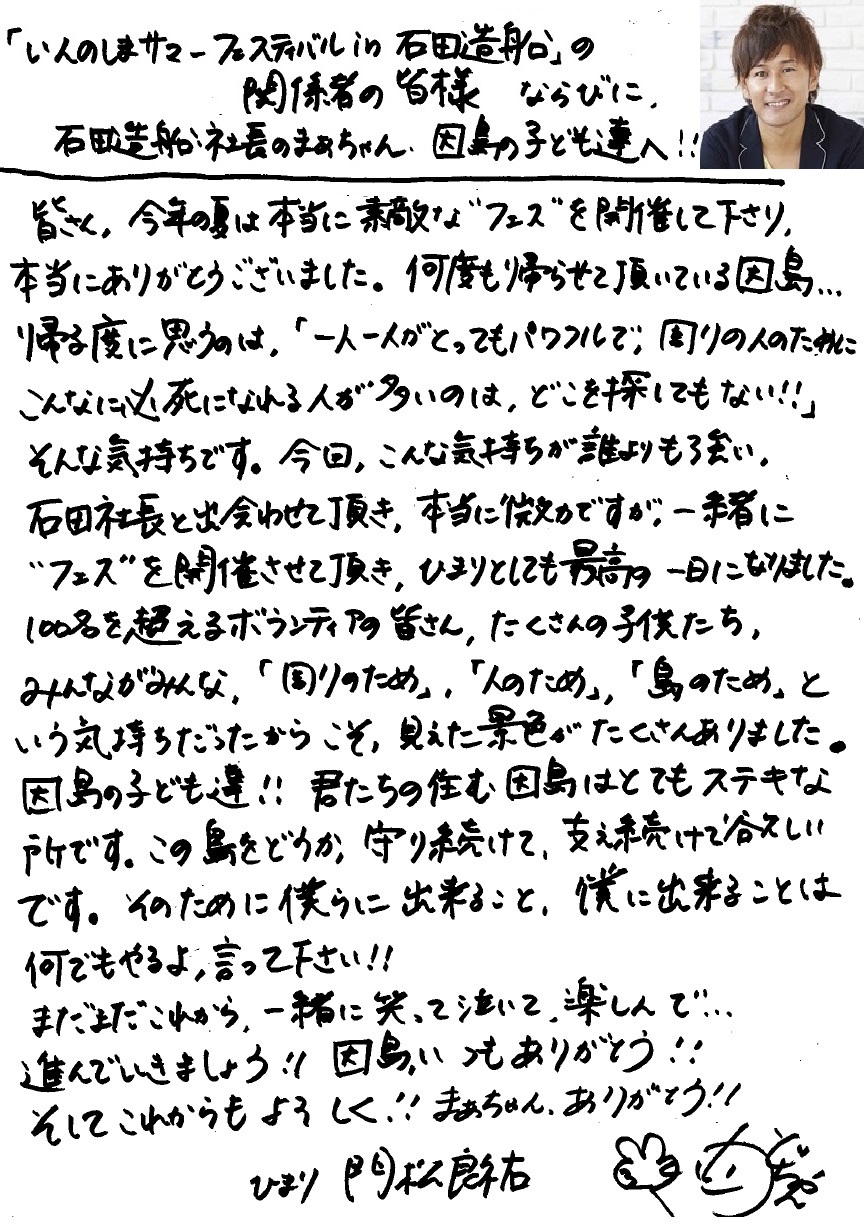 「いんのしまサマーフェスティバル in 石田造船」の
関係者の皆様 ならびに、
石田造船社長のまぁちゃん、因島の子ども達へ!!
皆さん、今年の夏は本当に素敵な"フェス"を開催して下さり、
本当にありがとうございました。何度も帰らせて頂いている因島…
帰る度に思うのは、「一人一人がとってもパワフルで、周りの人のために
こんなに必死になれる人が多いのは、どこを探してもない!!」
そんな気持ちです。今回、こんな気持ちが誰よりも強い、
石田社長と出会わせて頂き、本当に微力ですが、一緒に
"フェス"を開催させて頂き、ひまりとしても最高の一日になりました。
100名を超えるボランティアの皆さん、たくさんの子供たち、
みんながみんな、「周りのため」、「人のため」、「島のため」と
いう気持ちだったからこそ、見えた景色がたくさんありました。
因島の子ども達!! 君たちの住む因島はとてもステキな
所です。この島をどうか、守り続けて、支え続けて欲しい
です。そのために僕らに出来ること、僕に出来ることは
何でもやるよ、言って下さい!!
まだまだこれから、一緒に笑って泣いて、楽しんで…
進んでいきましょう!! 因島、いつもありがとう!!
そしてこれからもよろしく!! まぁちゃん、ありがとう!!
ひまり 門松良祐